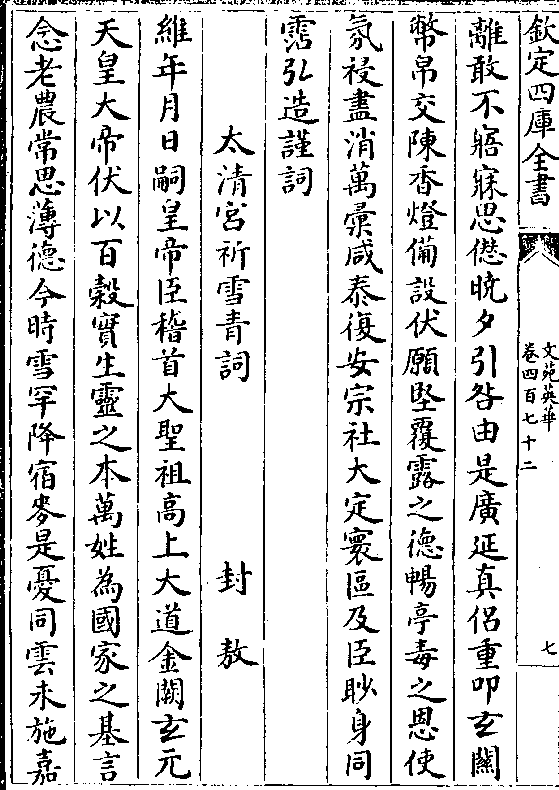 欽定四庫全書
文苑英華
卷四百七十二
七
離敢不寤寐思愆晩夕引咎由是廣延真侣重叩玄闗
幣帛交陳香燈備設伏願堅覆露之德暢亭毒之恩使
氛祲盡消萬彚咸泰復安宗社大定寰區及臣眇身同
霑弘造謹詞
太清宫祈雪青詞　封敖
維年月日嗣皇帝臣稽首大聖祖高上大道金闕玄元
天皇大帝伏以百穀實生靈之本萬姓為國家之基言
念老農常思薄德今時雪罕降宿麥是憂同雲未施嘉